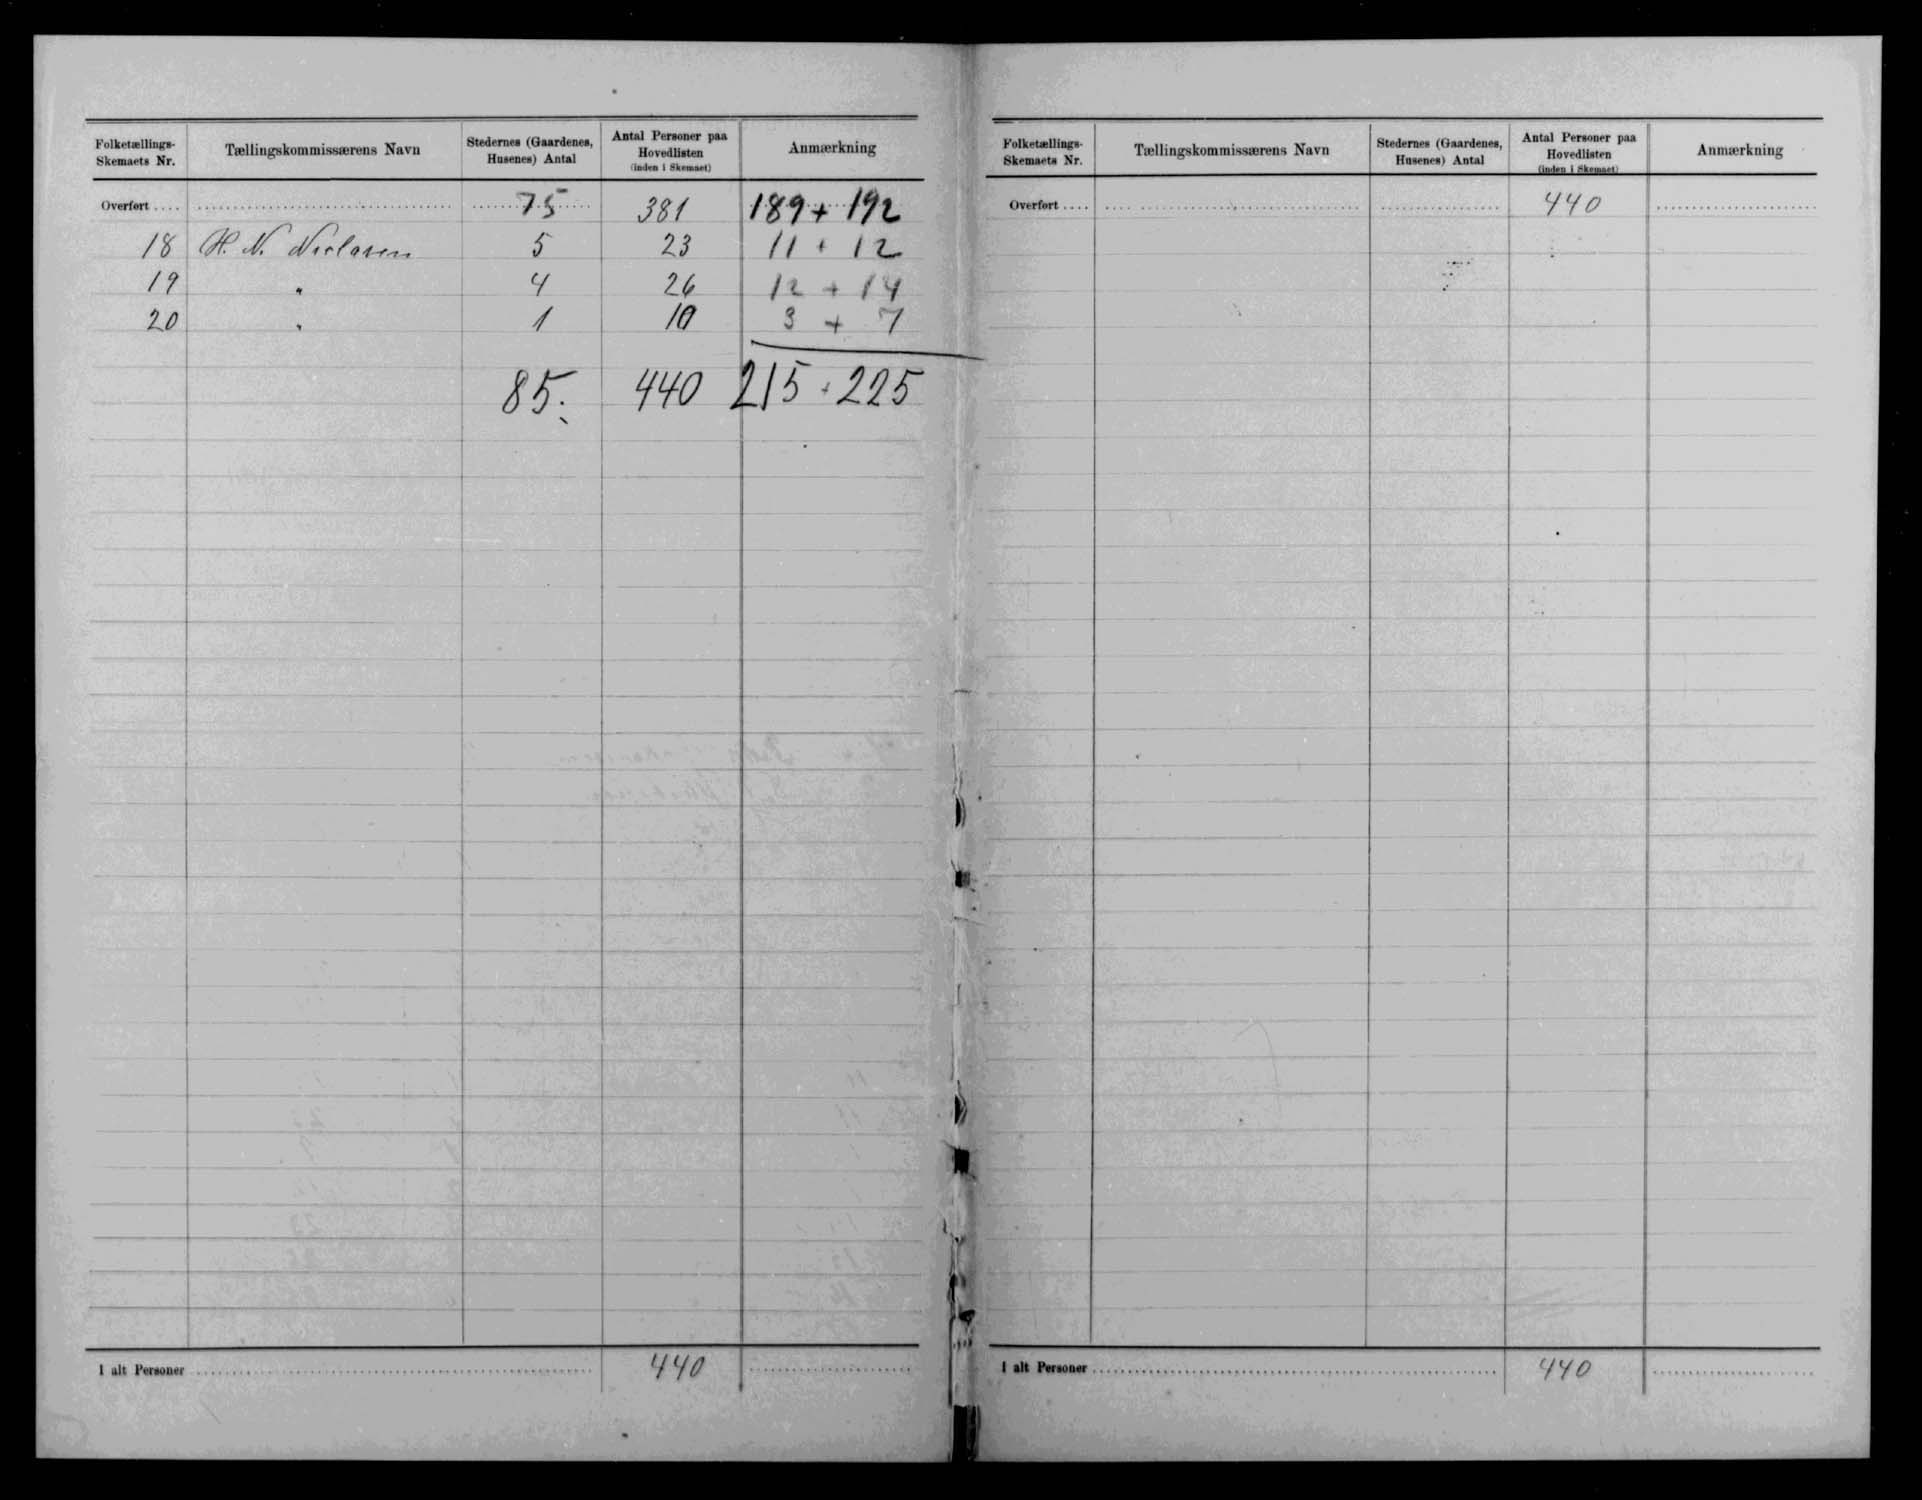 Folketællings-Skemaets Nr. Tællingskommissærens Navn Stedernes (Gaardenes, Husenes) Antal Antal Personer paa Hovedlisten (inden i Skemaet) Anmærkning
Overført .... 75 381 189 + 192
18 H. N. Nielsen 5 23 11 + 12
19 " 4 26 12 + 14
20 " 1 10 3 + 7
85. 440 215 + 225
I alt Personer 440
Folketællings-Skemaets Nr. Tællingskommissærens Navn Stedernes (Gaardenes, Husenes) Antal Antal Personer paa Hovedlisten (inden i Skemaet) Anmærkning
Overført .... 440
I alt Personer 440